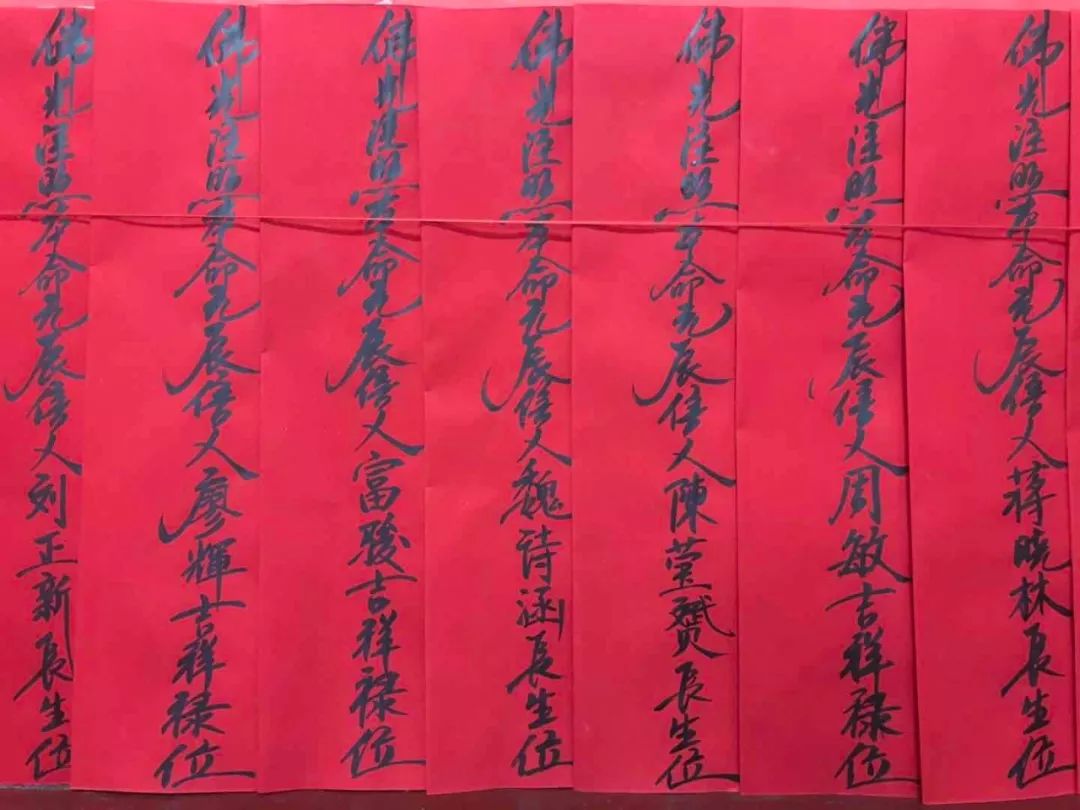 佛光注照本命元辰信人蒋晓林長生位
佛光注照本命元辰信人周敏吉祥禄位
佛光注照本命元辰信人陳莹赟長生位
佛光注照本命元辰信人魏诗涵長生位
佛光注照本命元辰信人富骏吉祥禄位
佛光注照本命元辰信人廖輝吉祥禄位
佛光注照本命元辰信人刘正新長生位